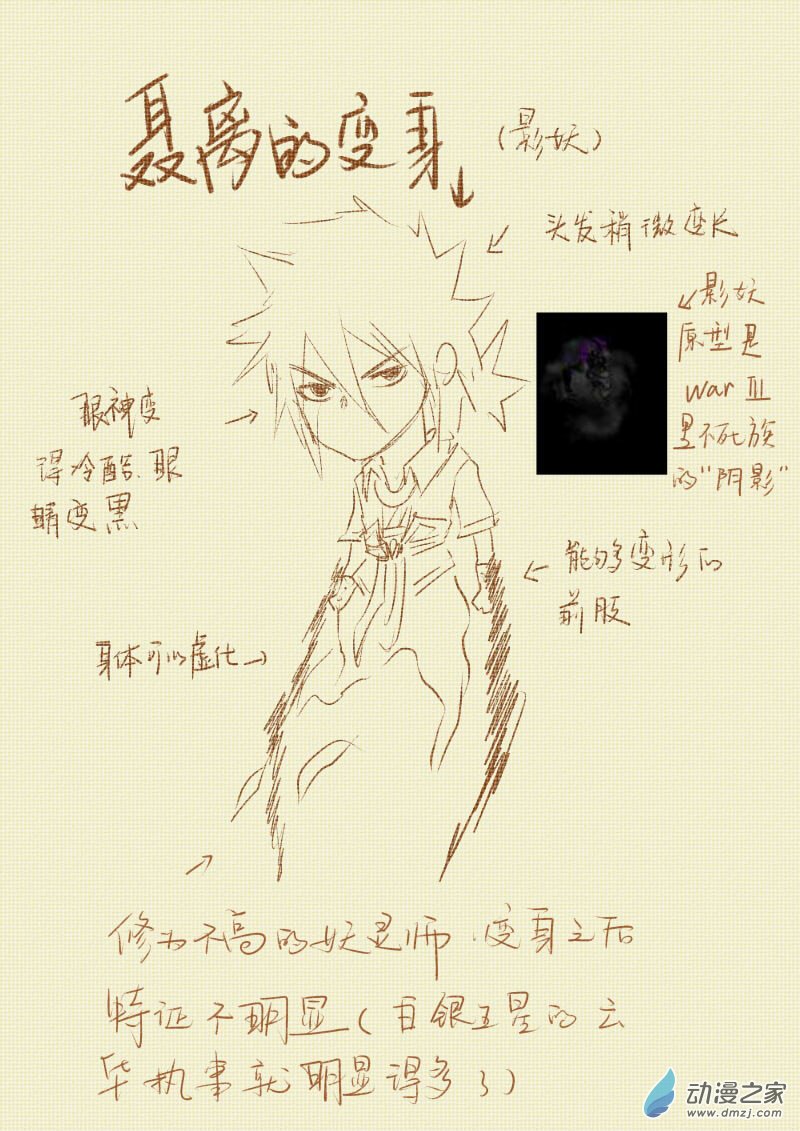 聂离的变身
（影妖）
头发稍微变长
影妖
原型是
war III
里不死族
的“阴影”
眼神变
得冷酷、眼
睛变黑
能够变形的
前肢
身体可以虚化
修为不高的妖灵师，变身之后
特证不明显（白银五星的云
华执事就明显得多了）
动漫之家
www.dmzj.com